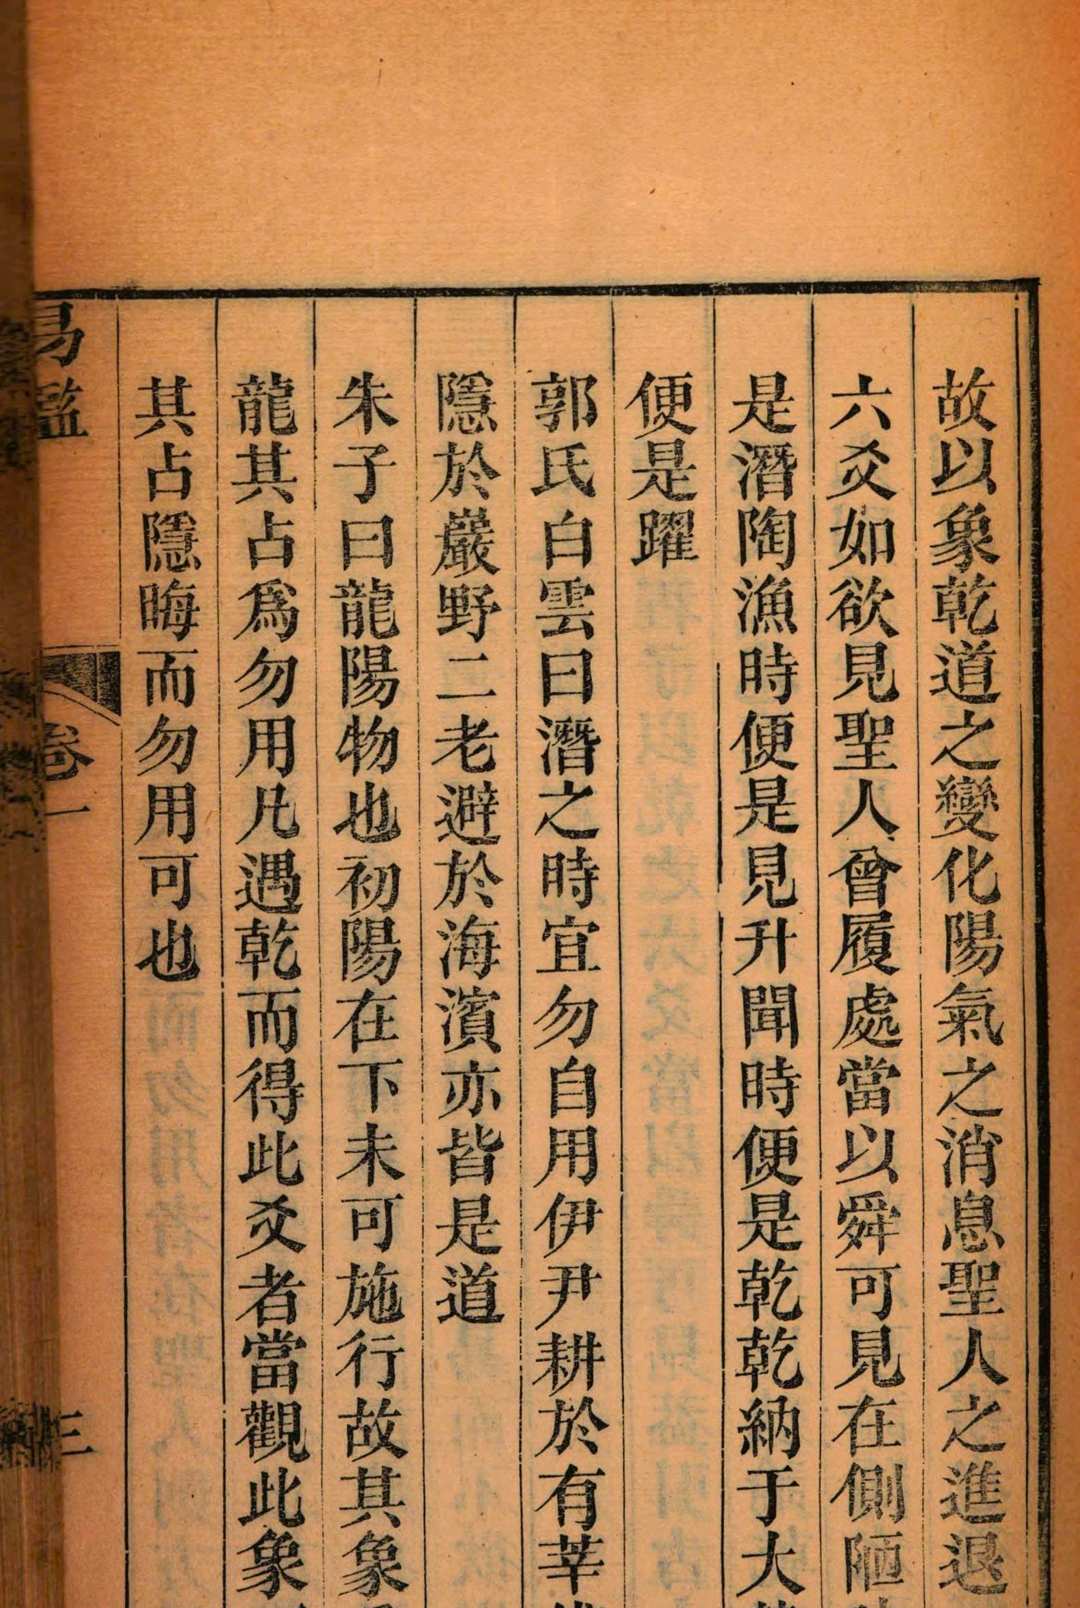 故以象乾道之變化陽氣之消息聖人之進退
六爻如欲見聖人曾履處當以舜可見在側陋
是潛陶漁時便是見升聞時便是乾乾納于大
便是躍
郭氏白雲曰潛之時宜勿自用伊尹耕於有莘
隱於巖野二老避於海濱亦皆是道
朱子曰龍陽物也初陽在下未可施行故其象
龍其占爲勿用凡遇乾而得此爻者當觀此象
其占隱晦而勿用可也
易鑑 卷一 三